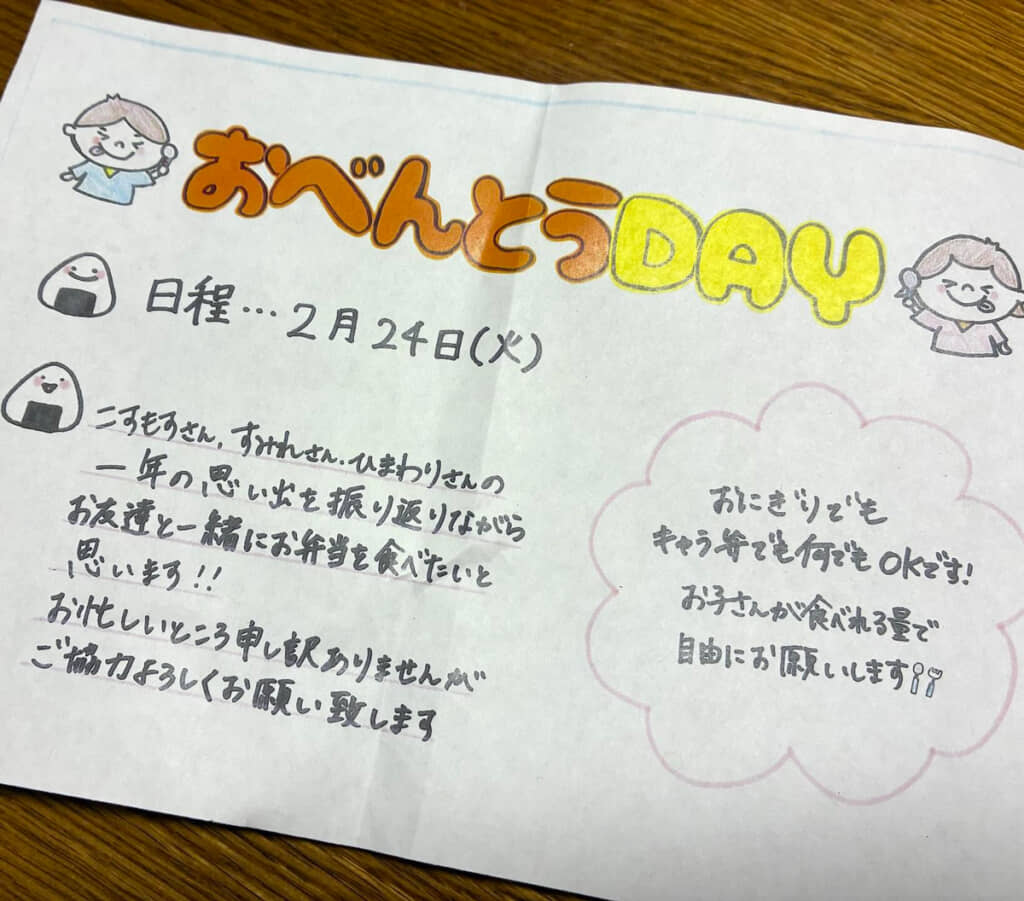 おべんとうDAY
日程…2月24日(火)
こすもすさん、すみれさん、ひまわりさんの
一年の思い出を振り返りながら
お友達と一緒にお弁当を食べたいと
思います!!
お忙しいところ申し訳ありませんが
ご協力よろしくお願い致します
おにぎりでも
キャラ弁でも何でもOKです!
お子さんが食べれる量で
自由にお願いします